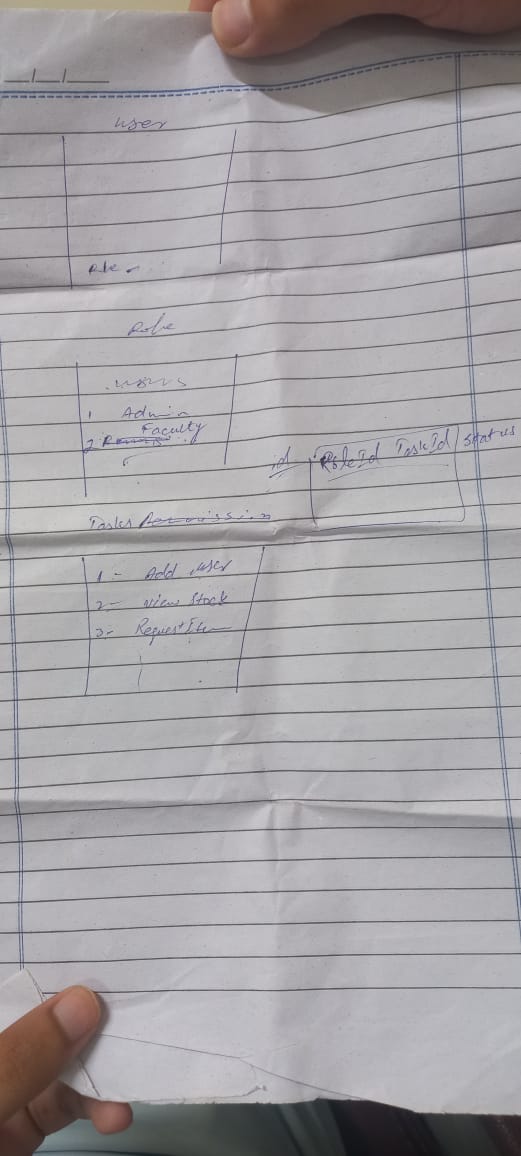 __/__/____
user
Role
1 Admin
2 Faculty
id RoleId TaskId status
Tasks Permission
1 - Add user
2 - View Stock
3 - Request Item